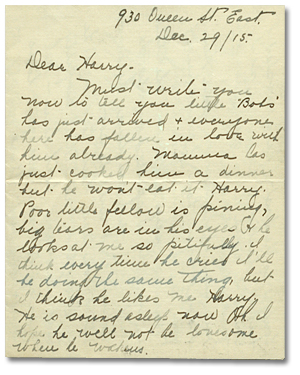 930 Queen St. East.
Dec. 29/15.
Dear Harry.
Must write you
now to tell you little "Bobs"
has just arrived & everyone
here has fallen in love with
him already. Mamma has
just cooked him a dinner
but he won't eat it Harry.
Poor little fellow is pining,
big tears are in his eyes & he
looks at me so pitifully. I
think every time he cries I'll
be doing the same thing, but
I think he likes me Harry.
He is sound asleep now Oh I
hope he will not be lonesome
when he wakens.